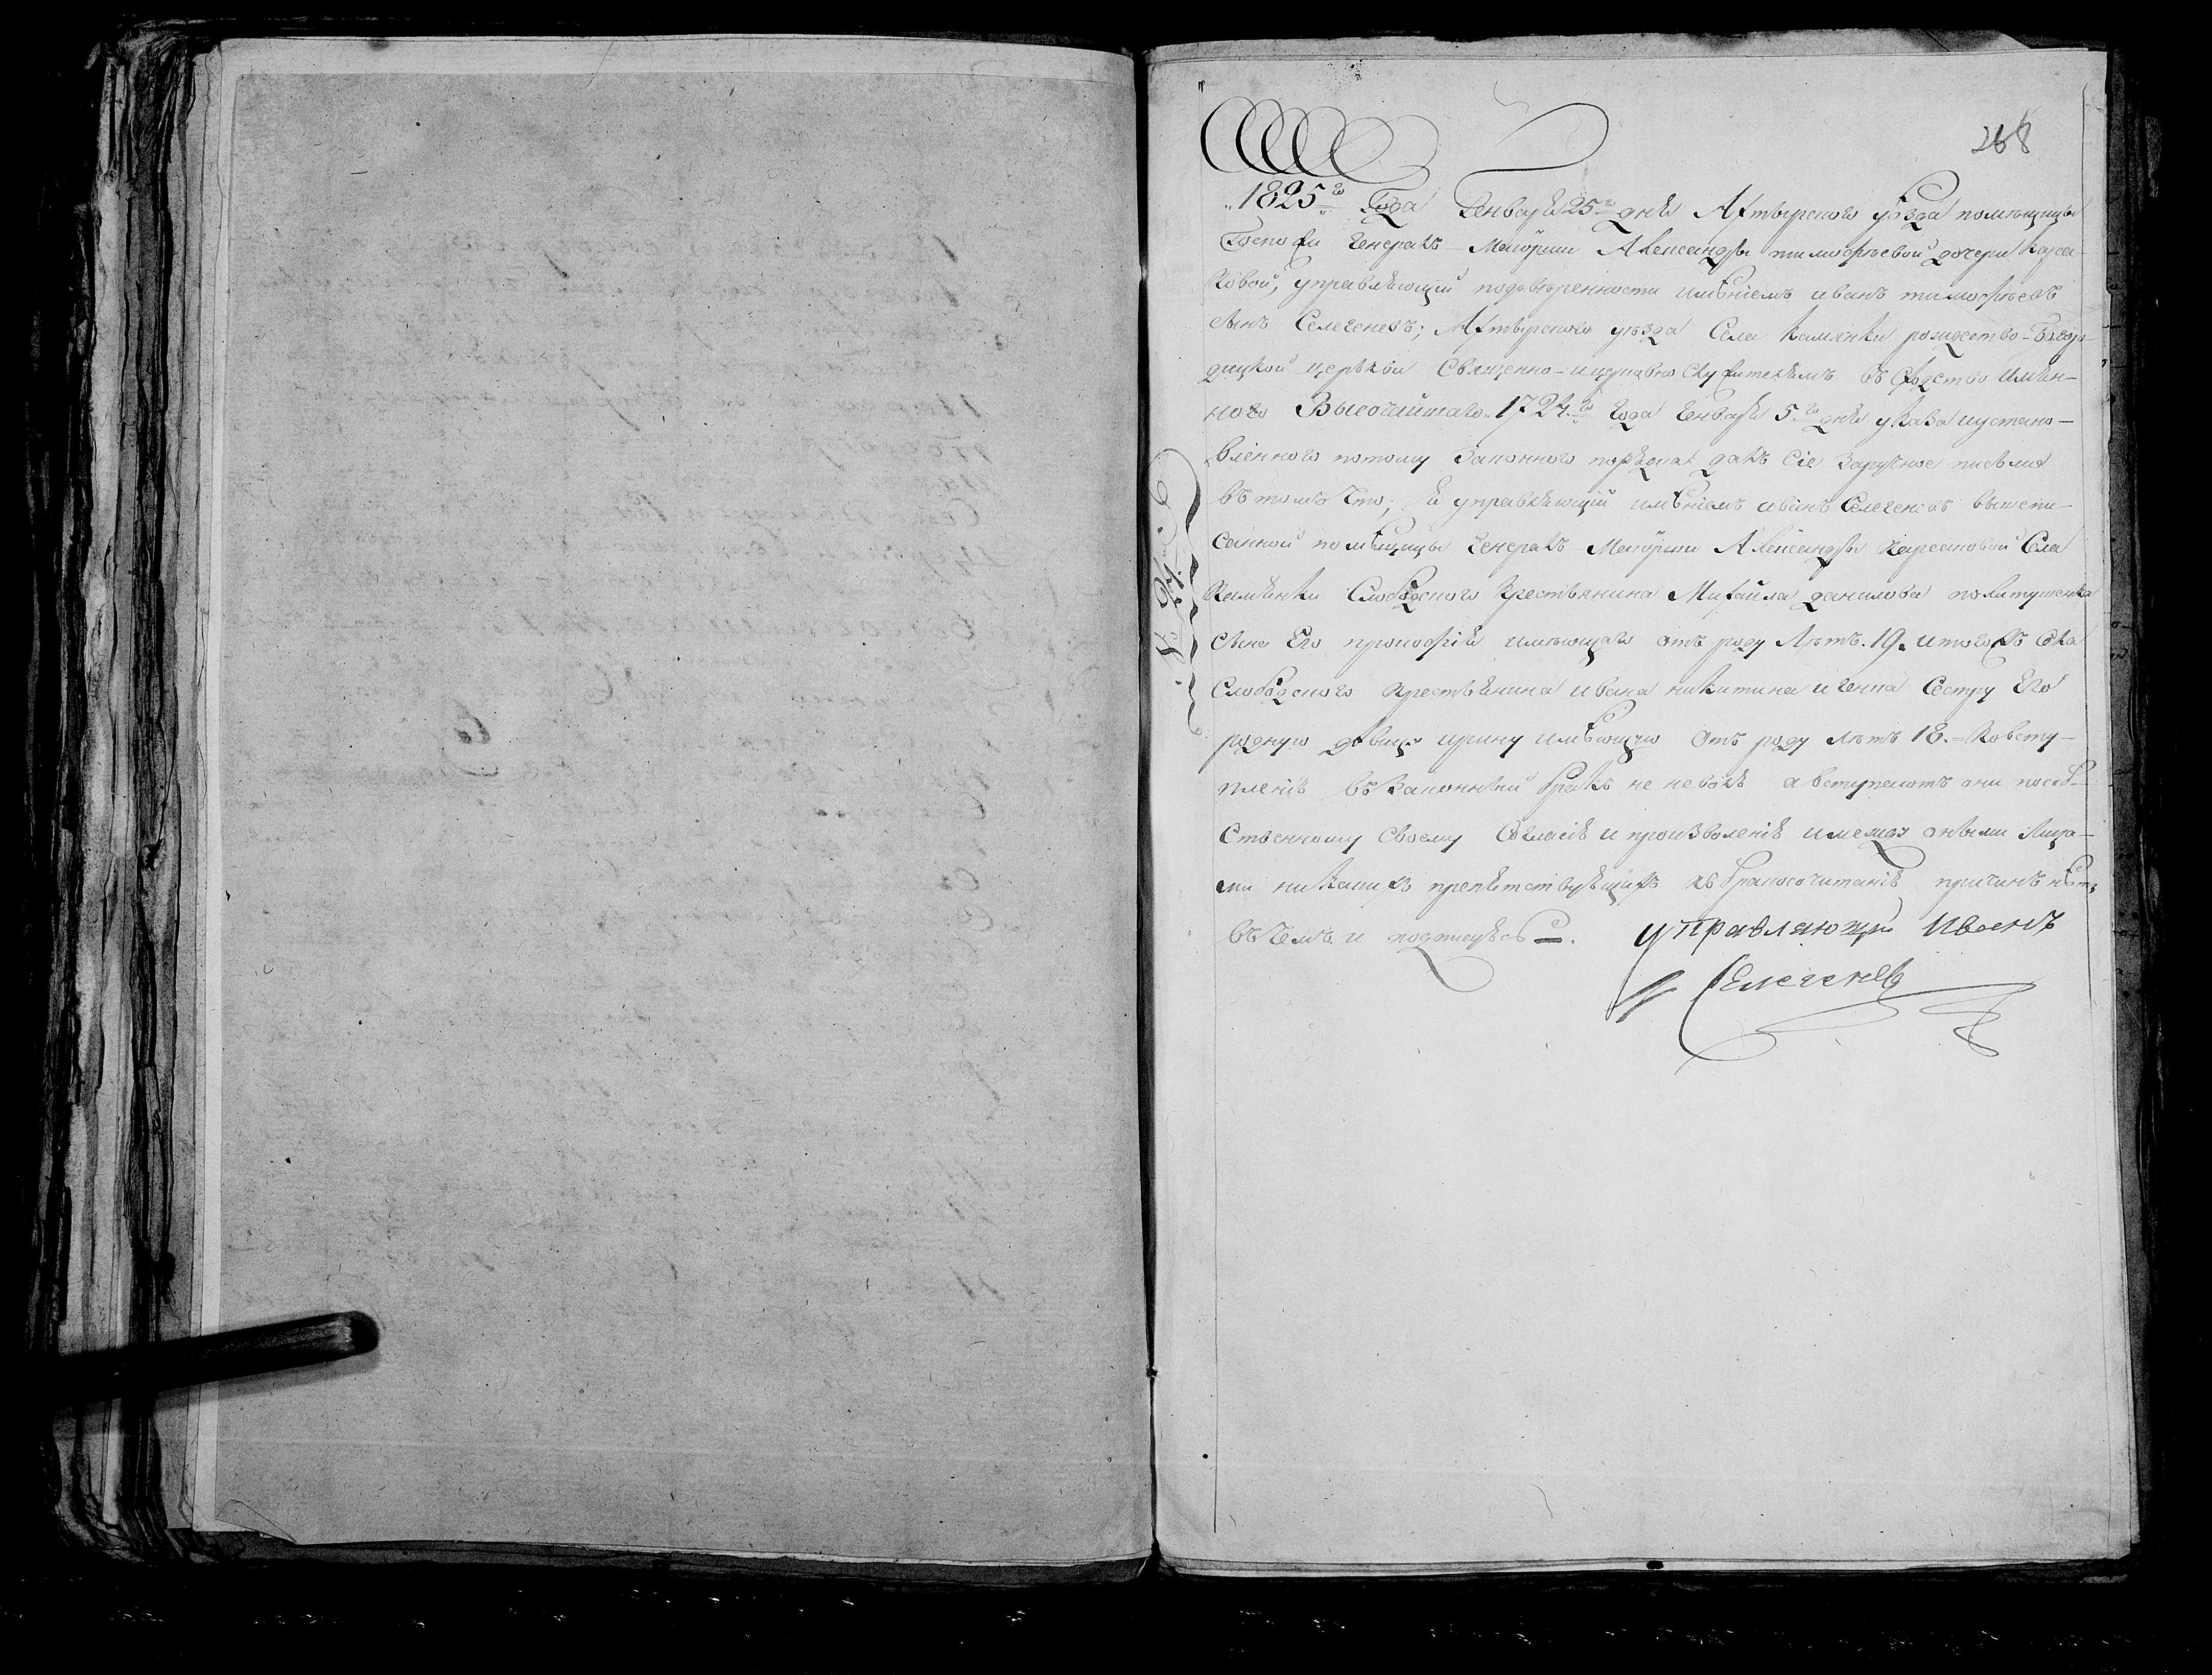 268
1825го Года Генваря 25го дня Ахтырскаго уѣзда помѣщицы
Госпожи Генералъ-Маіорши Александры тимофѣевой дочери Карса-
ковой, управляющій подовѣренности имѣніемъ иванъ тимофѣевъ
сынъ Селегеневъ; Ахтырского уѣзда Села камянки рождество-Богоро-
дицкой церькви Священно-ицерковно служителямъ въ сходство имян-
ного Высочайшаго 1724го года Генваря 5го дня указа иустано-
вленного потому Законного порядка далъ сіе Заручное письмо
въ томъ что; я управляющій имѣніемъ иванъ Селегеневъ вышепи-
санной помѣщицы Генералъ-Маіорши Александры карсаковой Села
Камянки Слободского крестьянина Михайла данилова
сына Его прокофія имѣющаго отъ роду лѣтъ 19. итогожъ села
слободского крестьянина ивана никитина Сестру Его
родную дѣвицу ирину имѣющую отъ роду лѣтъ 18. Ковсту-
пленію въ Законный бракъ не неволя авступаютъ они пособ-
ственному своему согласію и произволенію имежду оными лица-
ми никакихъ препятствующихъ къ бракосочитанію причинъ нѣтъ,
въ чемъ и подписуюсь. управляющи Иванъ
Селегенев
№ 24.